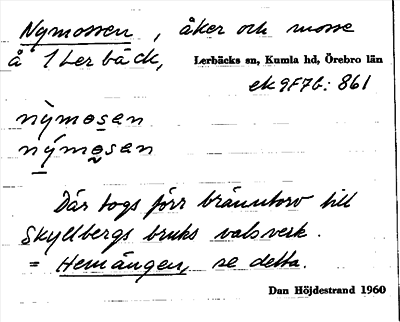 Nymossen, åker och mosse
å 1 Lerbäck, Lerbäcks sn, Kumla hd, Örebro län
ek 9F7b: 861
nỳmosen
nýmosen
Där togs förr bränntorv till
Skyllbergs bruks valsverk.
= Hemängen, se detta.
Dan Höjdestrand 1960